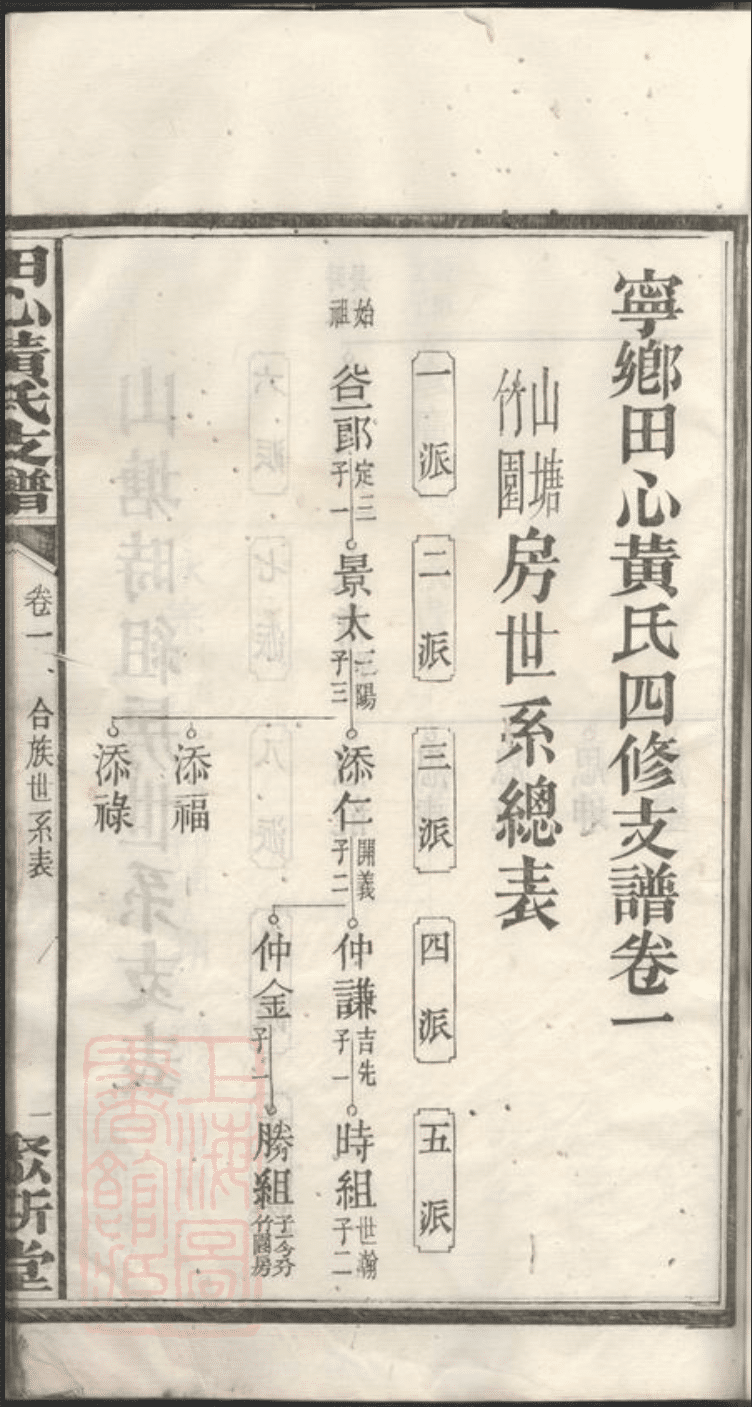 寧鄉田心黃氏四修支譜卷一
山塘
竹園
房世系總表
一派
二派
三派
四派
五派
始祖
谷一郎
定三
子一
景太
三陽
子三
添仁
開義
子二
仲謙
吉先
子一
時組
世瀚
子二
添福
仲金
子一
勝組
子一今分
竹園房
添祿
田心黃氏支譜
卷一、合族世系表
一
敦斯堂